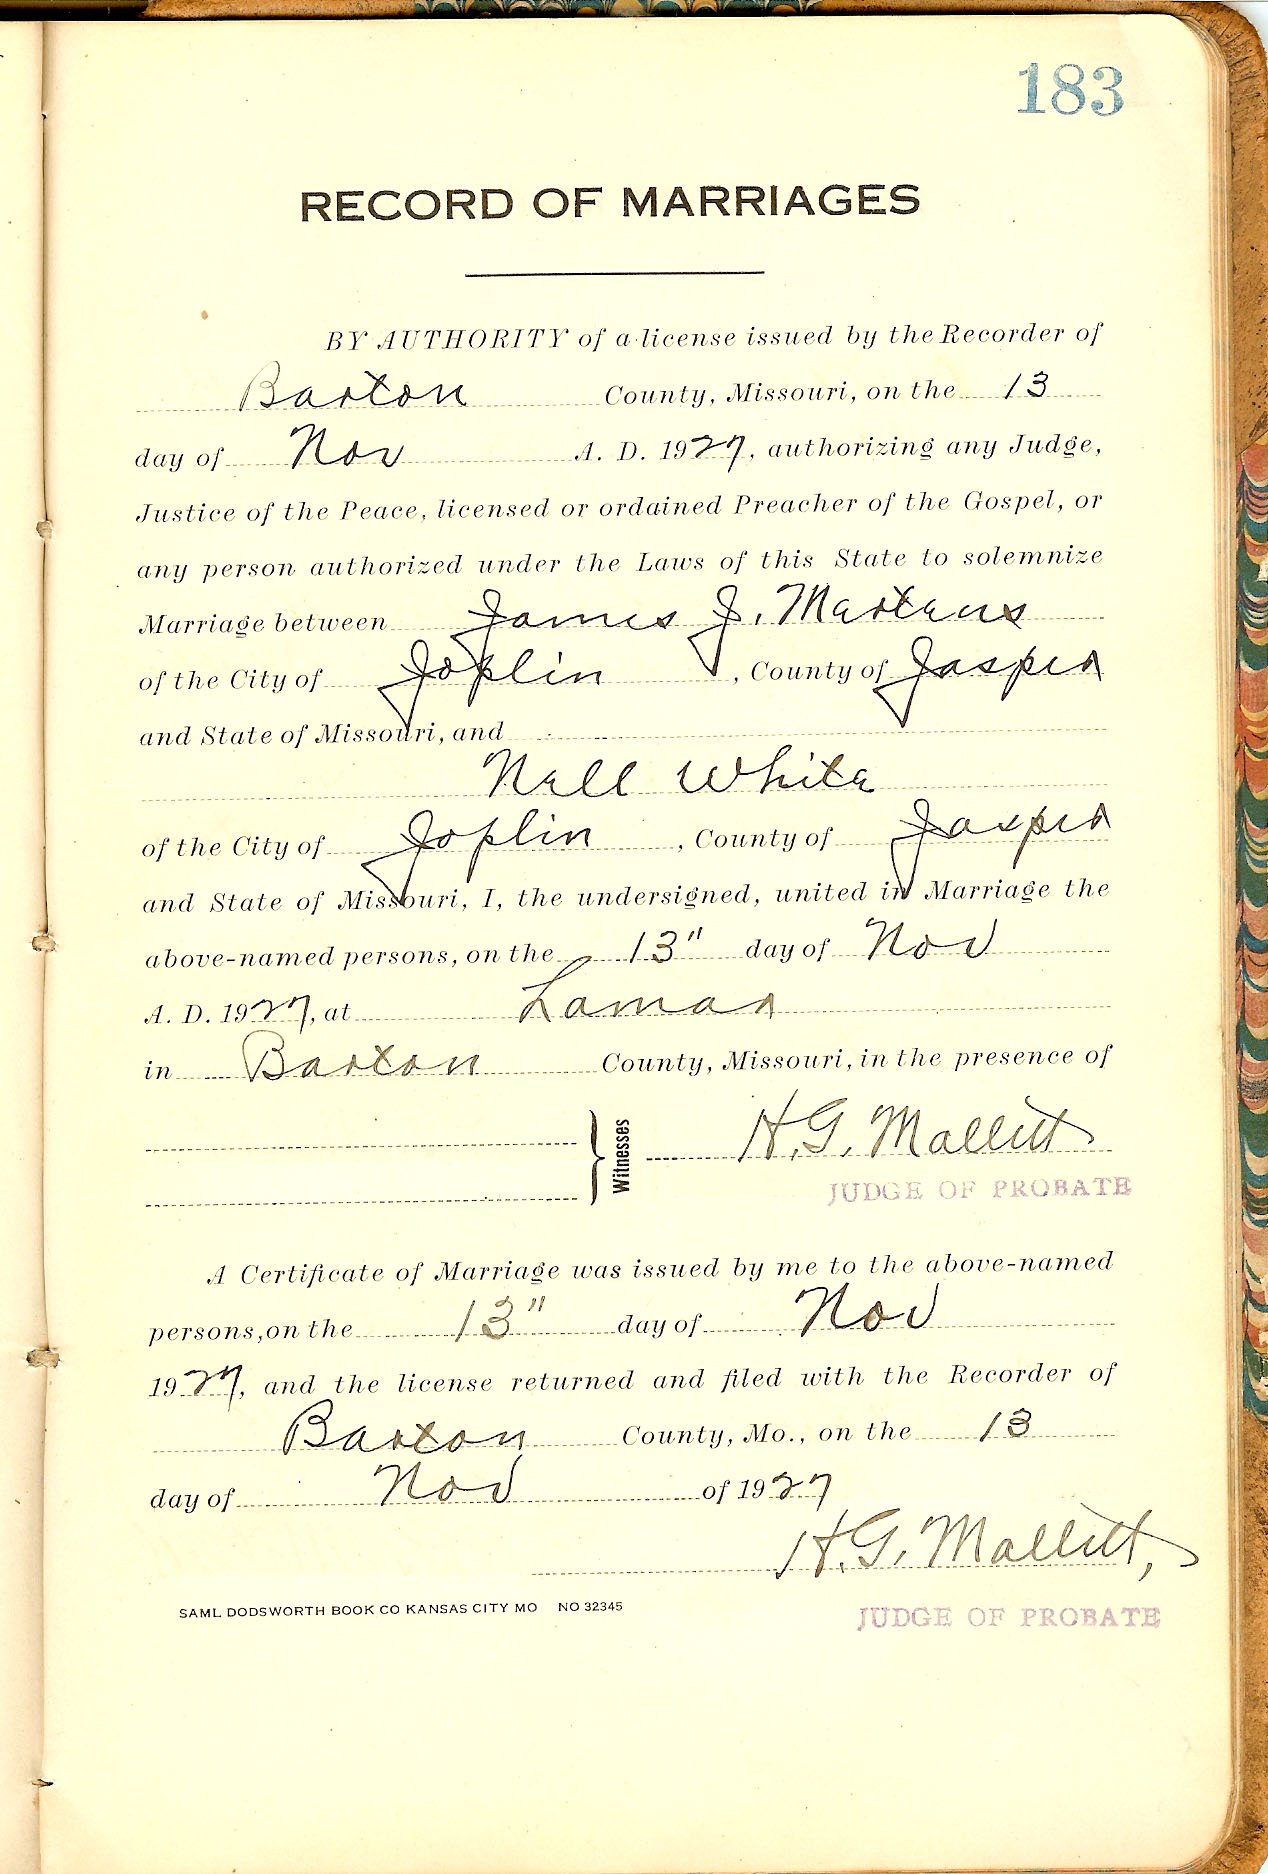 183
RECORD OF MARRIAGES
BY AUTHORITY of a license issued by the Recorder of
Barton County, Missouri, on the 13
day of Nov A. D. 1927, authorizing any Judge,
Justice of the Peace, licensed or ordained Preacher of the Gospel, or
any person authorized under the Laws of this State to solemnize
Marriage between James J. Martens
of the City of Joplin, County of Jasper
and State of Missouri, and
Nell White
of the City of Joplin, County of Jasper
and State of Missouri, I, the undersigned, united in Marriage the
above-named persons, on the 13" day of Nov
A. D. 1927, at Lamar
in Barton County, Missouri, in the presence of
Witnesses H. G. Mallitt
JUDGE OF PROBATE
A Certificate of Marriage was issued by me to the above-named
persons, on the 13" day of Nov
1927, and the license returned and filed with the Recorder of
Barton County, Mo., on the 13
day of Nov of 1927
H. G. Mallitt,
SAML DODSWORTH BOOK CO KANSAS CITY MO NO 32345
JUDGE OF PROBATE